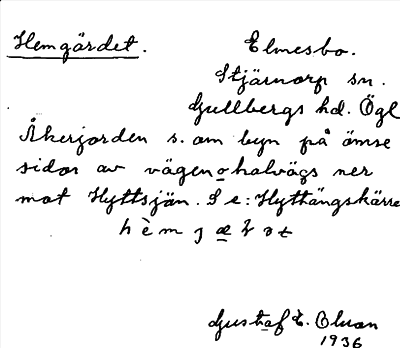 Hemgärdet. Elmesbo.
Stjärnorp sn.
Gullbergs hd. Ögl
Åkerjorden s. om byn på ömse
sidor av vägen o halvägs ner
mot Hyttsjön. S e: Hyttängskärre
Gustaf E. Olson
1936